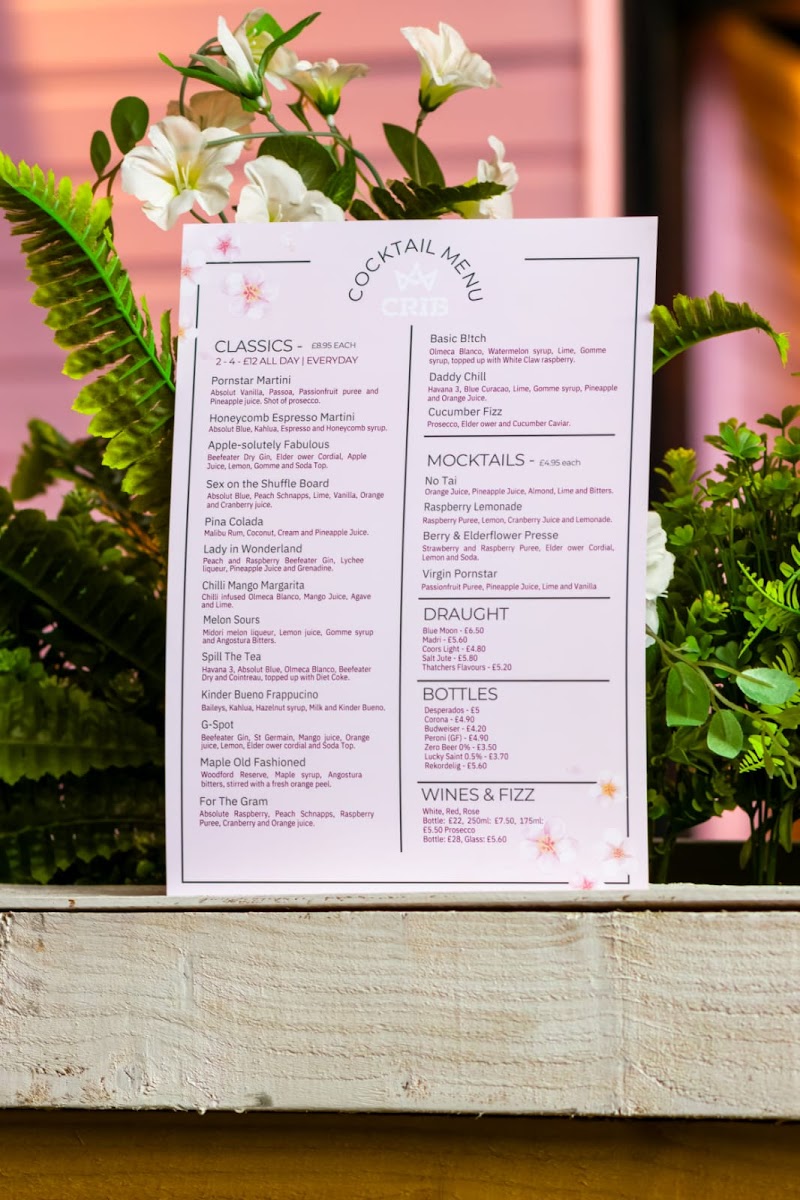 COCKTAIL MENU
CRIB
CLASSICS - £8.95 EACH
2 - 4 - £12 ALL DAY | EVERYDAY
Pornstar Martini
Absolut Vanilla, Passoa, Passionfruit puree and
Pineapple juice. Shot of prosecco.
Honeycomb Espresso Martini
Absolut Blue, Kahlua, Espresso and Honeycomb syrup.
Apple-solutely Fabulous
Beefeater Dry Gin, Elder ower Cordial, Apple
Juice, Lemon, Gomme and Soda Top.
Sex on the Shuffle Board
Absolut Blue, Peach Schnapps, Lime, Vanilla, Orange
and Cranberry juice.
Pina Colada
Malibu Rum, Coconut, Cream and Pineapple Juice.
Lady in Wonderland
Peach and Raspberry Beefeater Gin, Lychee
liqueur, Pineapple Juice and Grenadine.
Chilli Mango Margarita
Chilli infused Olmeca Blanco, Mango Juice, Agave
and Lime.
Melon Sours
Midori melon liqueur, Lemon juice, Gomme syrup
and Angostura Bitters.
Spill The Tea
Havana 3, Absolut Blue, Olmeca Blanco, Beefeater
Dry and Cointreau, topped up with Diet Coke.
Kinder Bueno Frappucino
Baileys, Kahlua, Hazelnut syrup, Milk and Kinder Bueno.
G-Spot
Beefeater Gin, St Germain, Mango juice, Orange
juice, Lemon, Elder ower cordial and Soda Top.
Maple Old Fashioned
Woodford Reserve, Maple syrup, Angostura
bitters, stirred with a fresh orange peel.
For The Gram
Absolute Raspberry, Peach Schnapps, Raspberry
Puree, Cranberry and Orange juice.
Basic B!tch
Olmeca Blanco, Watermelon syrup, Lime, Gomme
syrup, topped up with White Claw raspberry.
Daddy Chill
Havana 3, Blue Curacao, Lime, Gomme syrup, Pineapple
and Orange Juice.
Cucumber Fizz
Prosecco, Elder ower and Cucumber Caviar.
MOCKTAILS - £4.95 each
No Tai
Orange Juice, Pineapple Juice, Almond, Lime and Bitters.
Raspberry Lemonade
Raspberry Puree, Lemon, Cranberry Juice and Lemonade.
Berry & Elderflower Presse
Strawberry and Raspberry Puree, Elder ower Cordial,
Lemon and Soda.
Virgin Pornstar
Passionfruit Puree, Pineapple Juice, Lime and Vanilla
DRAUGHT
Blue Moon - £6.50
Madri - £5.60
Coors Light - £4.80
Salt Jute - £5.80
Thatchers Flavours - £5.20
BOTTLES
Desperados - £5
Corona - £4.90
Budweiser - £4.20
Peroni (GF) - £4.90
Zero Beer 0% - £3.50
Lucky Saint 0.5% - £3.70
Rekordelig - £5.60
WINES & FIZZ
White, Red, Rose
Bottle: £22, 250ml: £7.50, 175ml:
£5.50 Prosecco
Bottle: £28, Glass: £5.60